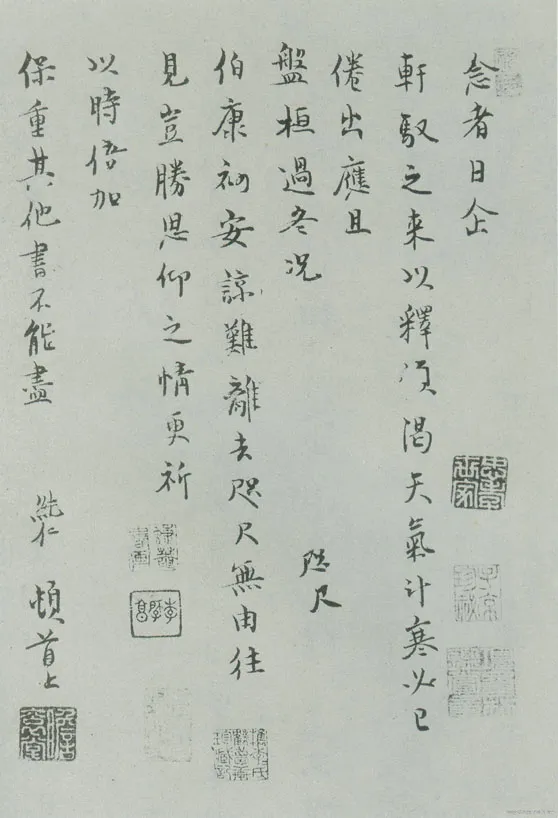 念者日企
軒馭之來以釋須渴天氣計寒必已
倦出應且
盤桓過冬況
伯康初安諒難離去咫尺無由往
見豈勝思仰之情更祈
以時倍加
保重其他書不能盡
純仁 頓首上
咫尺